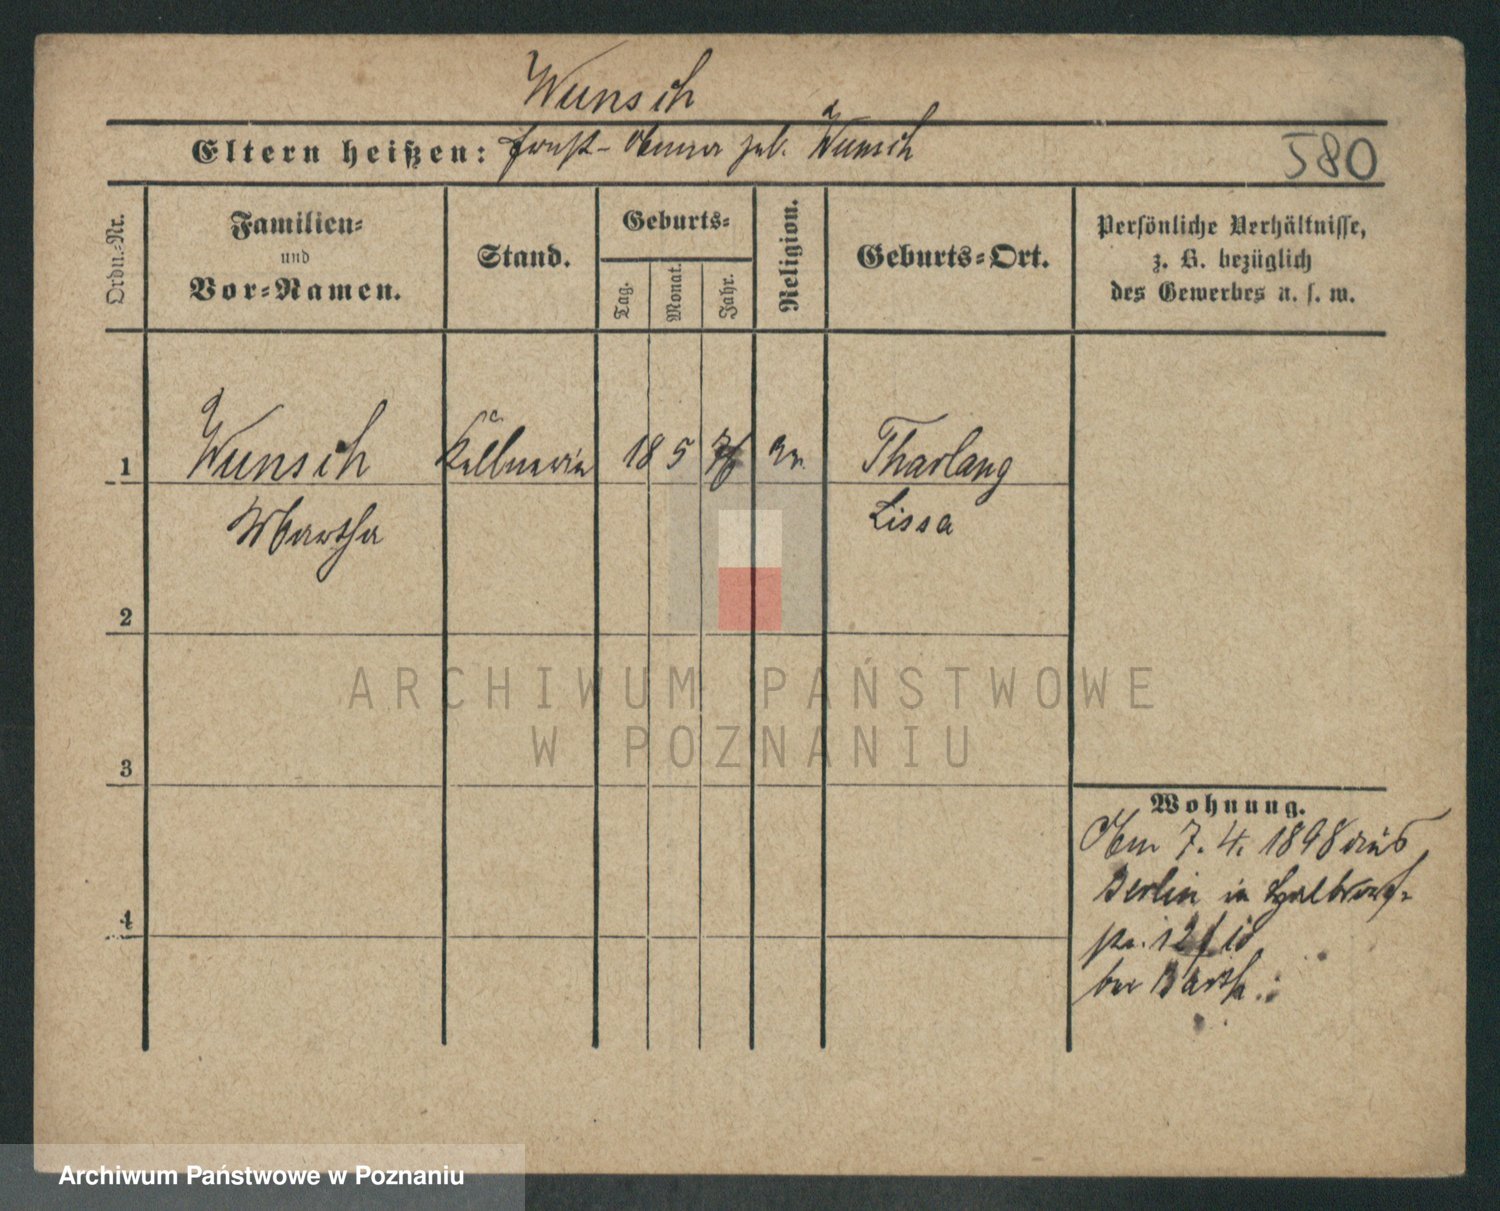 Wunsch
Eltern heißen: Ernst - Anna geb. Wunsch
580
Ordn.-Nr.
Familien-
und
Vor-Namen.
Stand.
Geburts-
Tag.
Monat.
Jahr.
Religion.
Geburts-Ort.
Persönliche Verhältnisse,
z. B. bezüglich
des Gewerbes u. s. w.
1
Wunsch
Kellnerin
18 5 76
ev.
Tharlang
Martha
Lissa
2
ARCHIWUM PAŃSTWOWE
W POZNANIU
3
Wohnung.
Am 7. 4. 1898 aus
Berlin in Halbdorf-
str. 12
4
bei Barth.
Archiwum Państwowe w Poznaniu